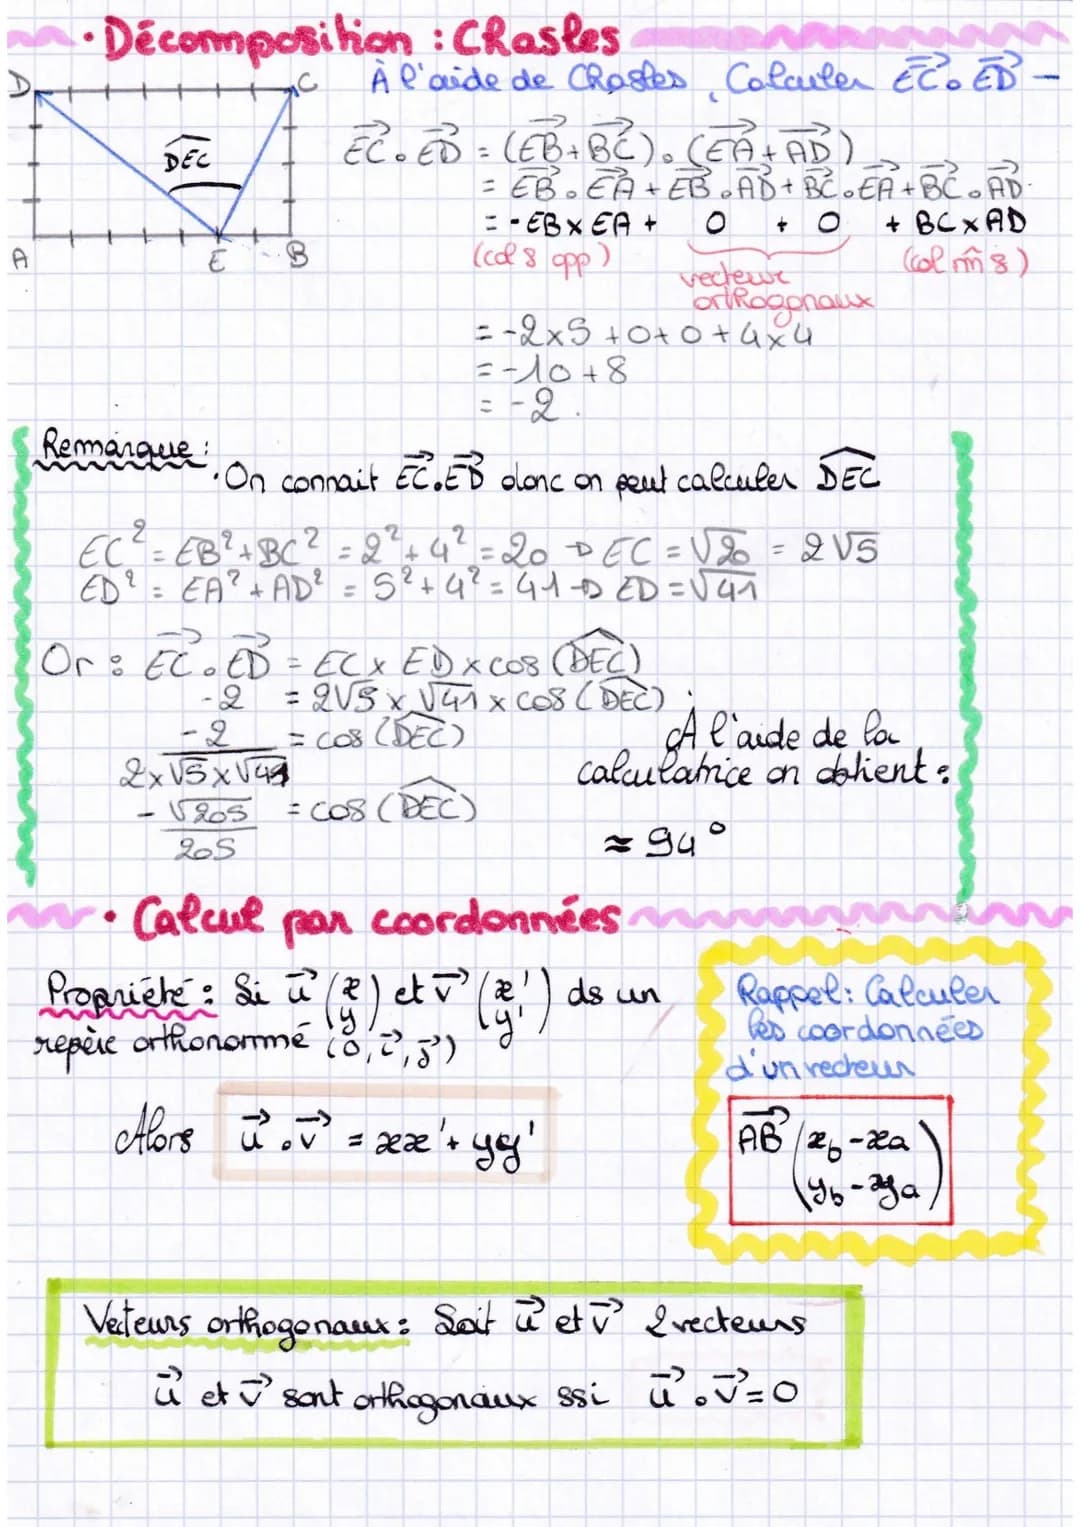 • Décomposition : Chasles
D C
À l'aide de Chasles, Calculer EC⃗ . ED⃗ -
DEC
A E B
EC⃗ . ED⃗ = (EB⃗ + BC⃗) . (EA⃗ + AD⃗)
= EB⃗ . EA⃗ + EB⃗ . AD⃗ + BC⃗ . EA⃗ + BC⃗ . AD⃗
= - EB x EA + 0 + 0 + BC x AD
(col s opp) vecteur orthogonaux (col m̂ s)
= -2x5 +0+0+4x4
= -10+8
= -2.
Remarque :
• On connait EC⃗.ED⃗ donc on peut calculer DEC
EC² = EB²+BC² = 2²+4² = 20 → EC = √20 = 2√5
ED² = EA²+AD² = 5²+4² = 41 → ED = √41
Or : EC⃗ . ED⃗ = EC x ED x cos (DEC)
-2 = 2√5 x √41 x cos (DEC)
-2 / 2x√5x√41 = cos (DEC)
- √205 / 205 = cos (DEC)
À l'aide de la
calculatrice on obtient :
≈ 94°
• Calcul par coordonnées
Propriété : Si u⃗ (x y) et v⃗ (x' y') ds un
repère orthonormé (0, i⃗, j⃗)
Alors u⃗ . v⃗ = xx' + yy'
Rappel : Calculer
les coordonnées
d'un vecteur
AB⃗ (x_b - x_a
y_b - y_a)
Vecteurs orthogonaux : Soit u⃗ et v⃗ 2 vecteurs
u⃗ et v⃗ sont orthogonaux ssi u⃗ . v⃗ = 0